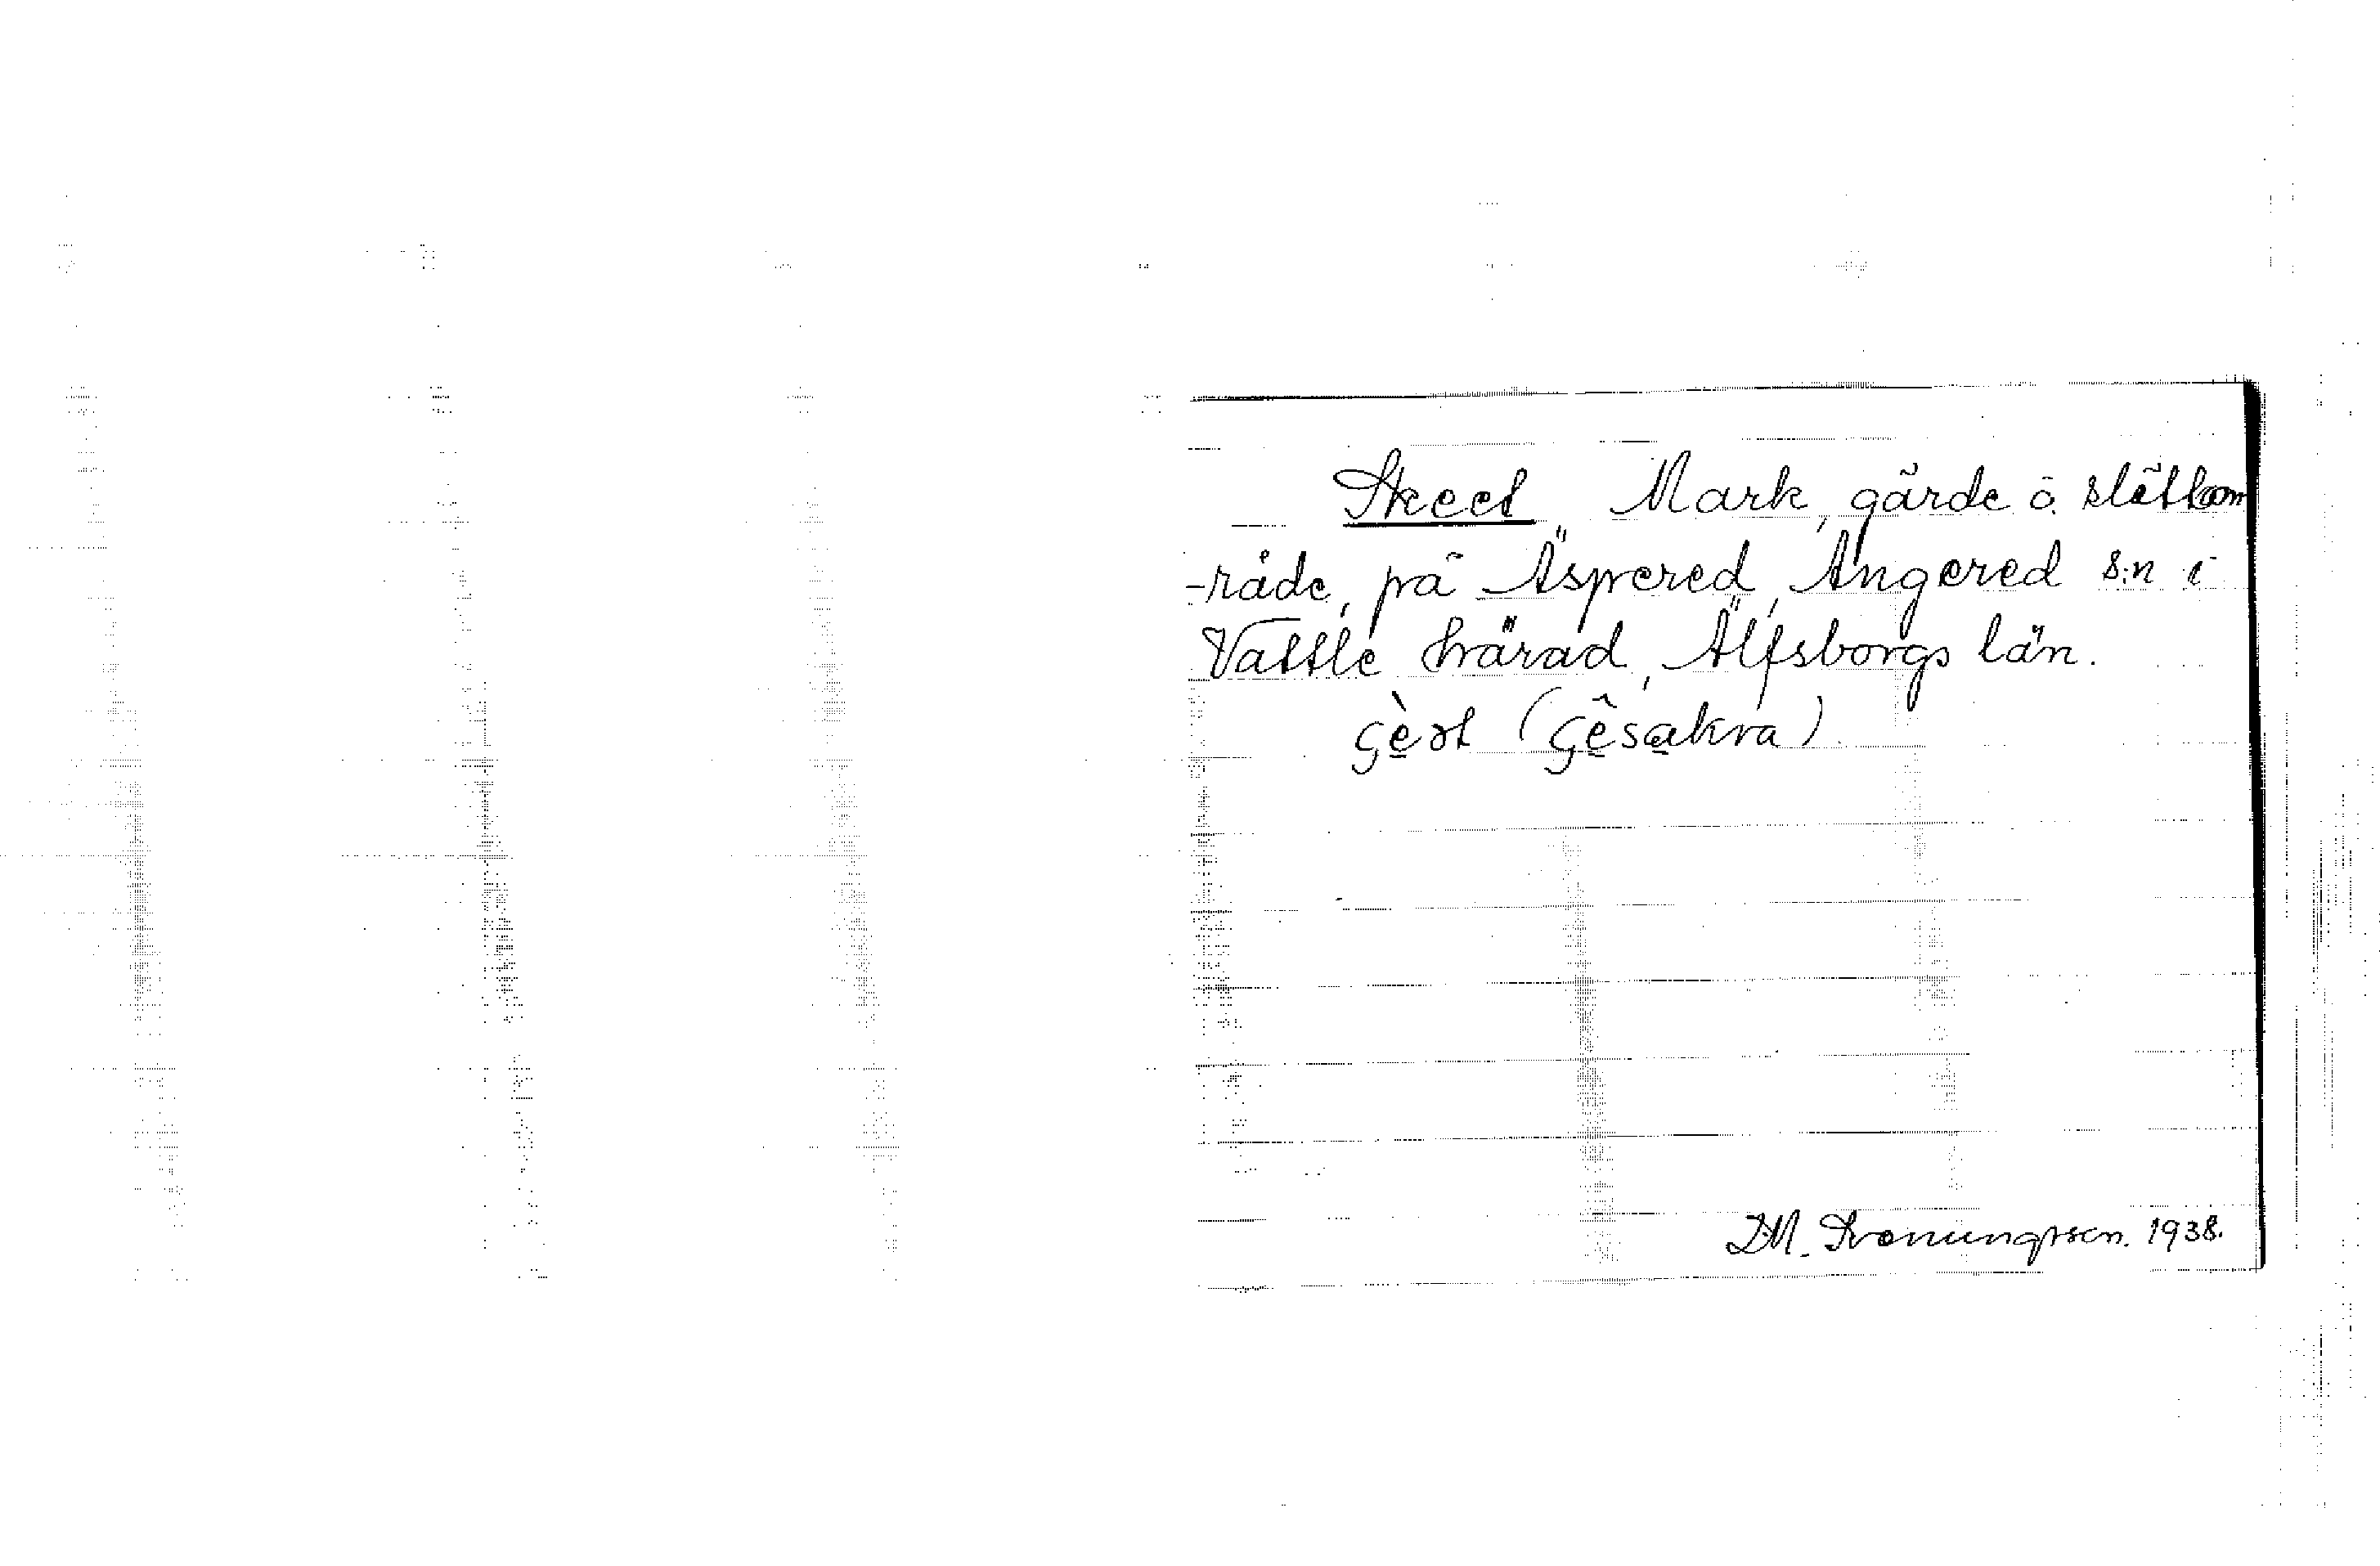 Skeet Mark, gärde ö. slättom
-råde, på Äspered, Angered s:n i
Vättle härad, Älfsborgs län.
(Gêsakra)
1938.